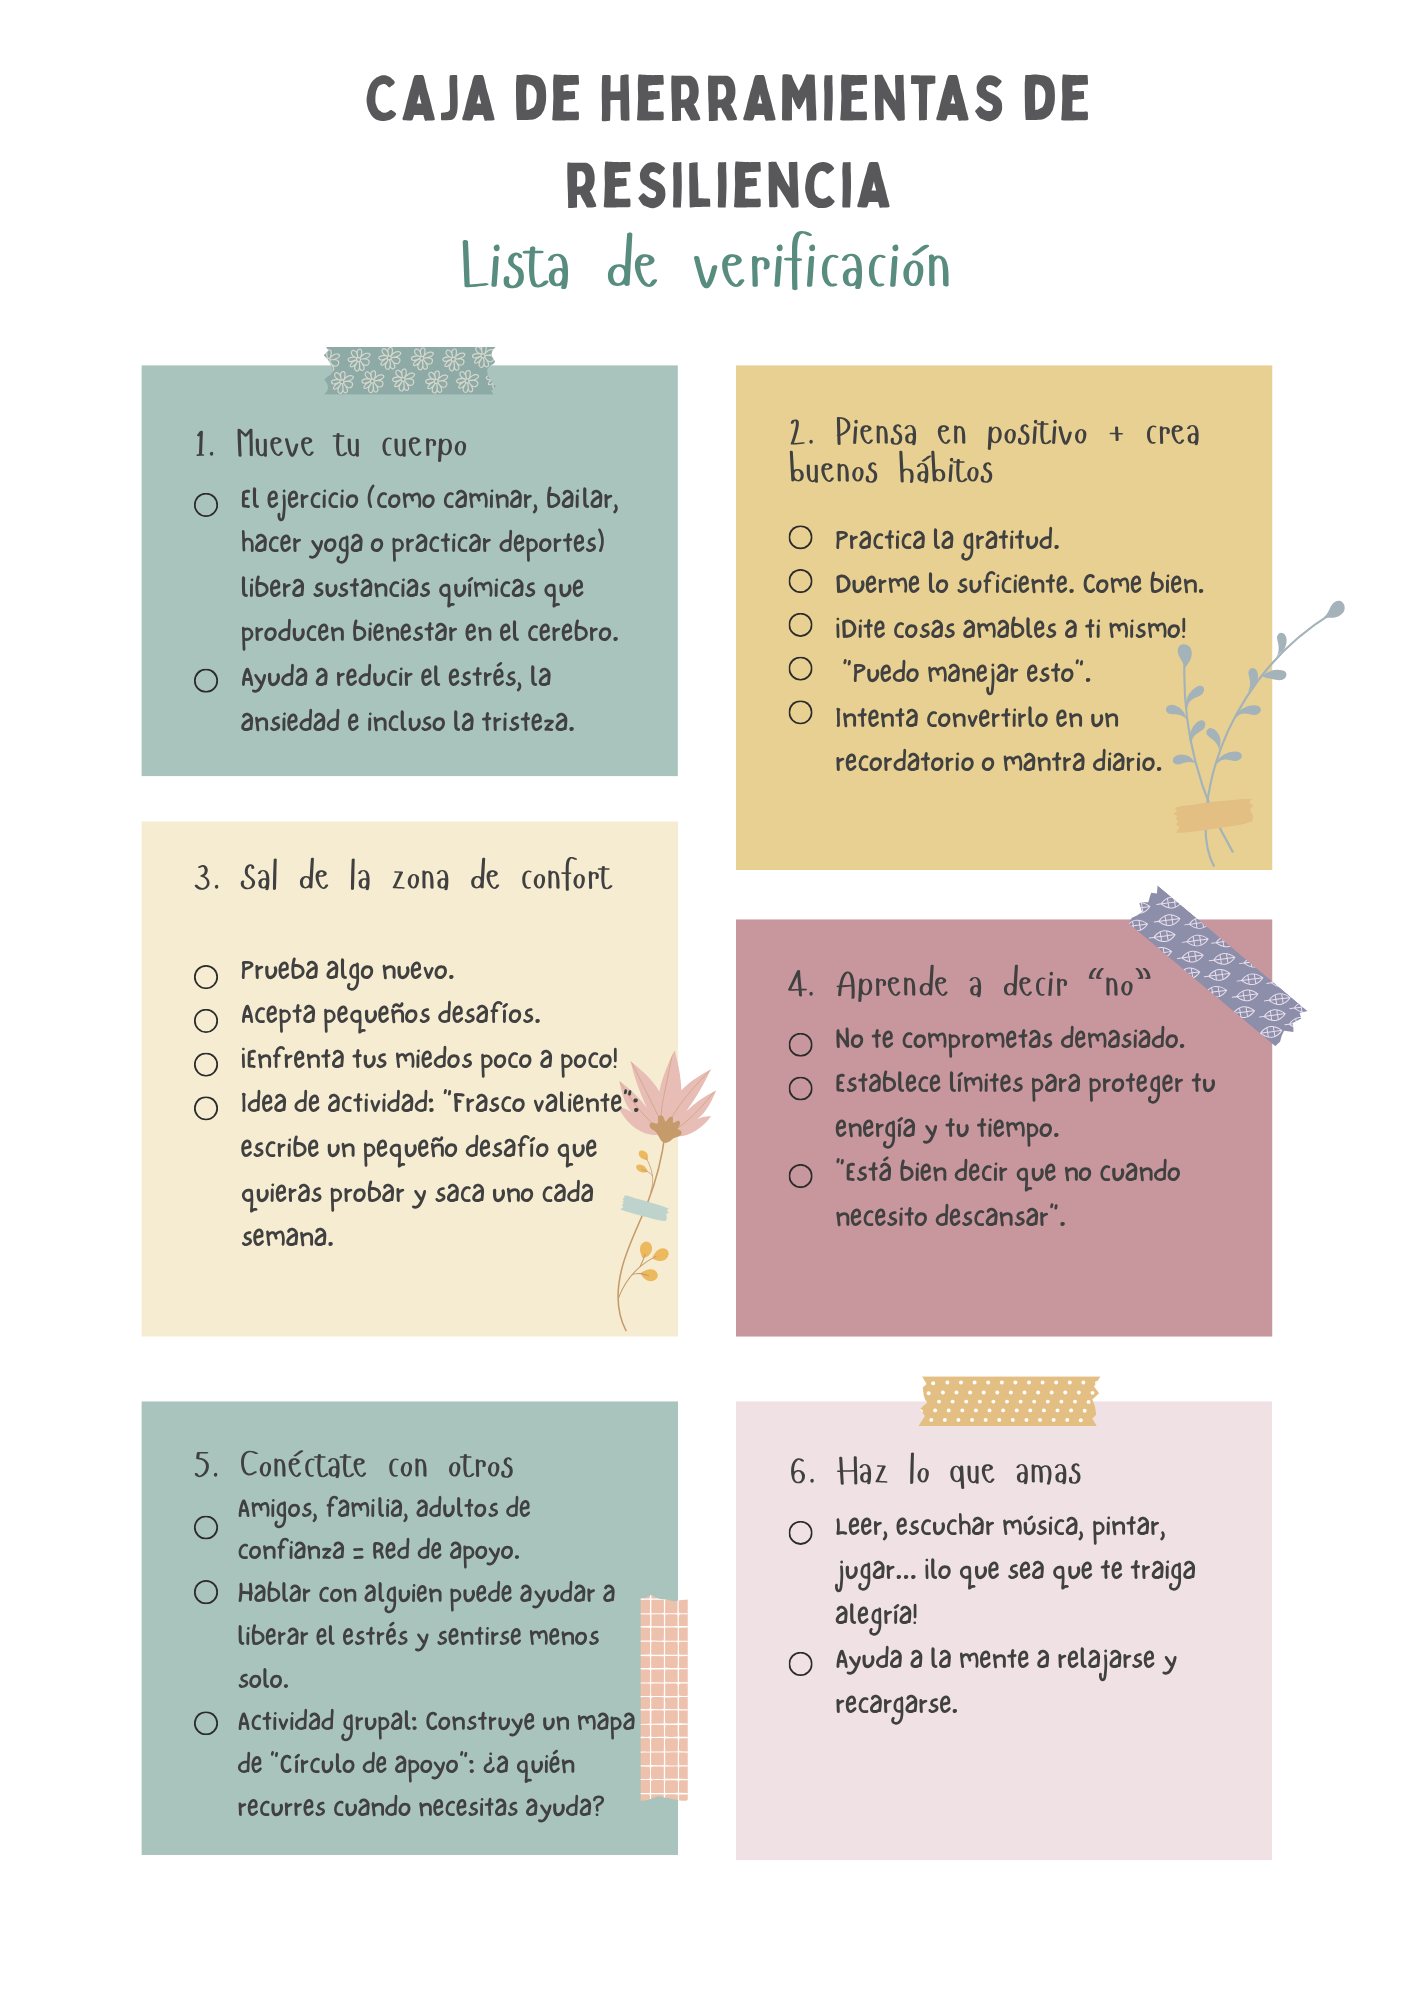 CAJA DE HERRAMIENTAS DE
RESILIENCIA
Lista de verificación
1. Mueve tu cuerpo
El ejercicio (como caminar, bailar,
hacer yoga o practicar deportes)
libera sustancias químicas que
producen bienestar en el cerebro.
Ayuda a reducir el estrés, la
ansiedad e incluso la tristeza.
2. Piensa en positivo + crea
buenos hábitos
Practica la gratitud.
Duerme lo suficiente. Come bien.
¡Dite cosas amables a ti mismo!
"Puedo manejar esto".
Intenta convertirlo en un
recordatorio o mantra diario.
3. Sal de la zona de confort
Prueba algo nuevo.
Acepta pequeños desafíos.
¡Enfrenta tus miedos poco a poco!
Idea de actividad: "Frasco valiente":
escribe un pequeño desafío que
quieras probar y saca uno cada
semana.
4. Aprende a decir “no”
No te comprometas demasiado.
Establece límites para proteger tu
energía y tu tiempo.
"Está bien decir que no cuando
necesito descansar".
5. Conéctate con otros
Amigos, familia, adultos de
confianza = Red de apoyo.
Hablar con alguien puede ayudar a
liberar el estrés y sentirse menos
solo.
Actividad grupal: Construye un mapa
de "Círculo de apoyo": ¿a quién
recurres cuando necesitas ayuda?
6. Haz lo que amas
Leer, escuchar música, pintar,
jugar... ¡lo que sea que te traiga
alegría!
Ayuda a la mente a relajarse y
recargarse.